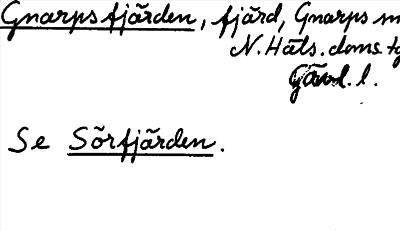 Gnarpsfjärden, fjärd, Gnarps
N. Häls. doms.
Gävl. l.
Se Sörfjärden.